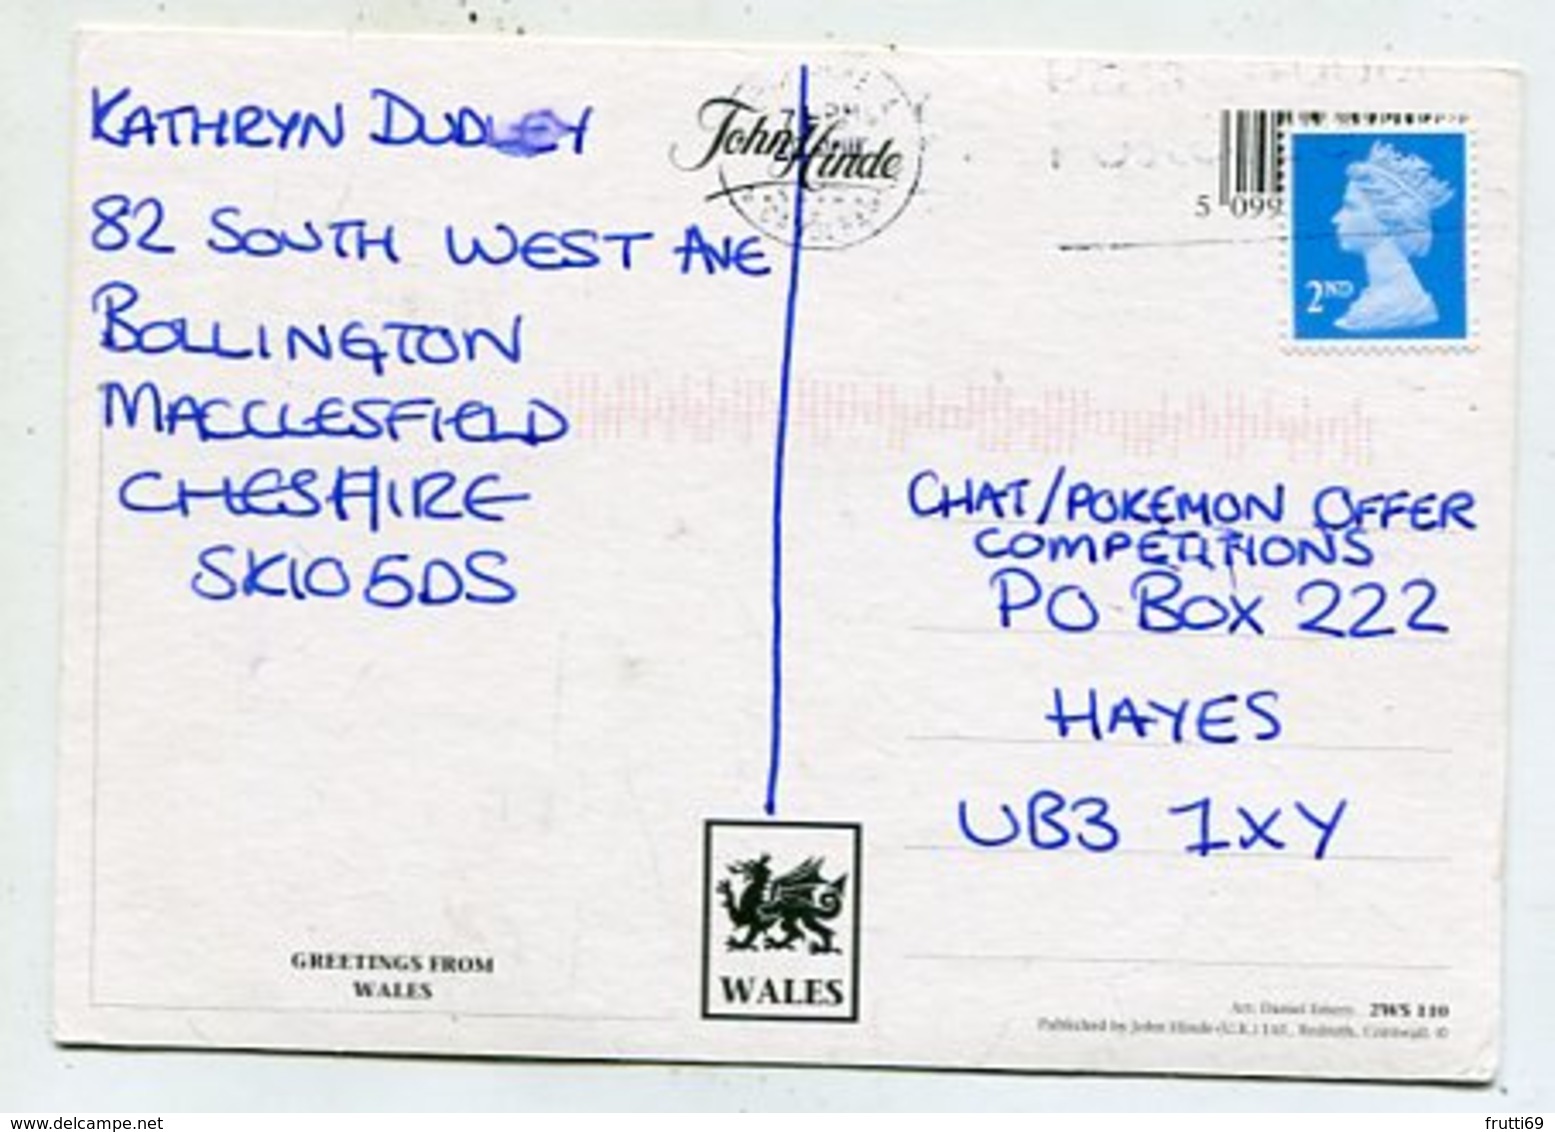 KATHRYN DUDLEY
82 SOUTH WEST AVE
BOLLINGTON
MACCLESFIELD
CHESHIRE
SK10 5DS
John Hinde
5 099
2ND
CHAT/POKEMON OFFER
COMPETITIONS
PO BOX 222
HAYES
UB3 1XY
GREETINGS FROM
WALES
WALES
Art: Daniel Emery. 2WS 110
Published by John Hinde (U.K.) Ltd., Redruth, Cornwall. ©
frutti69